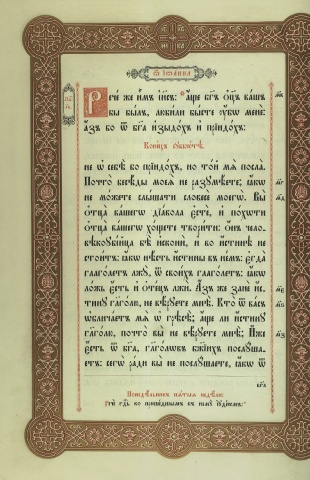 Ѿ ІѠАННА
Рече же имъ іи҃съ: аще бг҃ъ оц҃ъ вашъ
бы былъ, любили бысте ᲂубѡ мене:
азъ бо ѿ бг҃а изыдохъ и прїидохъ:
Конецъ субботѣ.
не ѡ себѣ бо прїидохъ, но той мѧ посла.
Почто бесѣды моеѧ не разумѣете; ꙗкѡ
не можете слышати словесе моегѡ. Вы
отца вашегѡ дїавола есте, и похоти
отца вашегѡ хощете творити: онъ чело-
вѣкоубїйца бѣ искони, и во истинѣ не
стоитъ: ꙗкѡ нѣсть истины въ немъ: егда
глаголетъ лжу, ѿ своихъ глаголетъ: ꙗкѡ
ложь есть и отецъ лжи. Азъ же зане ис-
тину глаголю, не вѣруете мнѣ. Кто ѿ васъ
ѡбличаетъ мѧ ѡ грѣсѣ; аще ли истину
глаголю, почто вы не вѣруете мнѣ; Иже
есть ѿ бг҃а, глаголѡвъ бж҃їихъ послуша-
етъ: сегѡ ради вы не послушаете, ꙗкѡ ѿ
бг҃а
Понедѣльникъ пѧтыѧ недѣли:
къ нему іудеомъ: